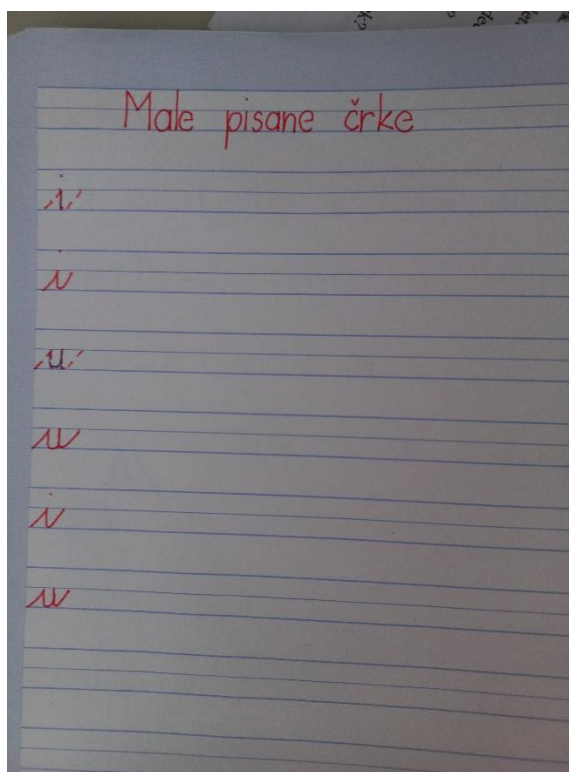 Male pisane črke
i
i
u
u
i
u